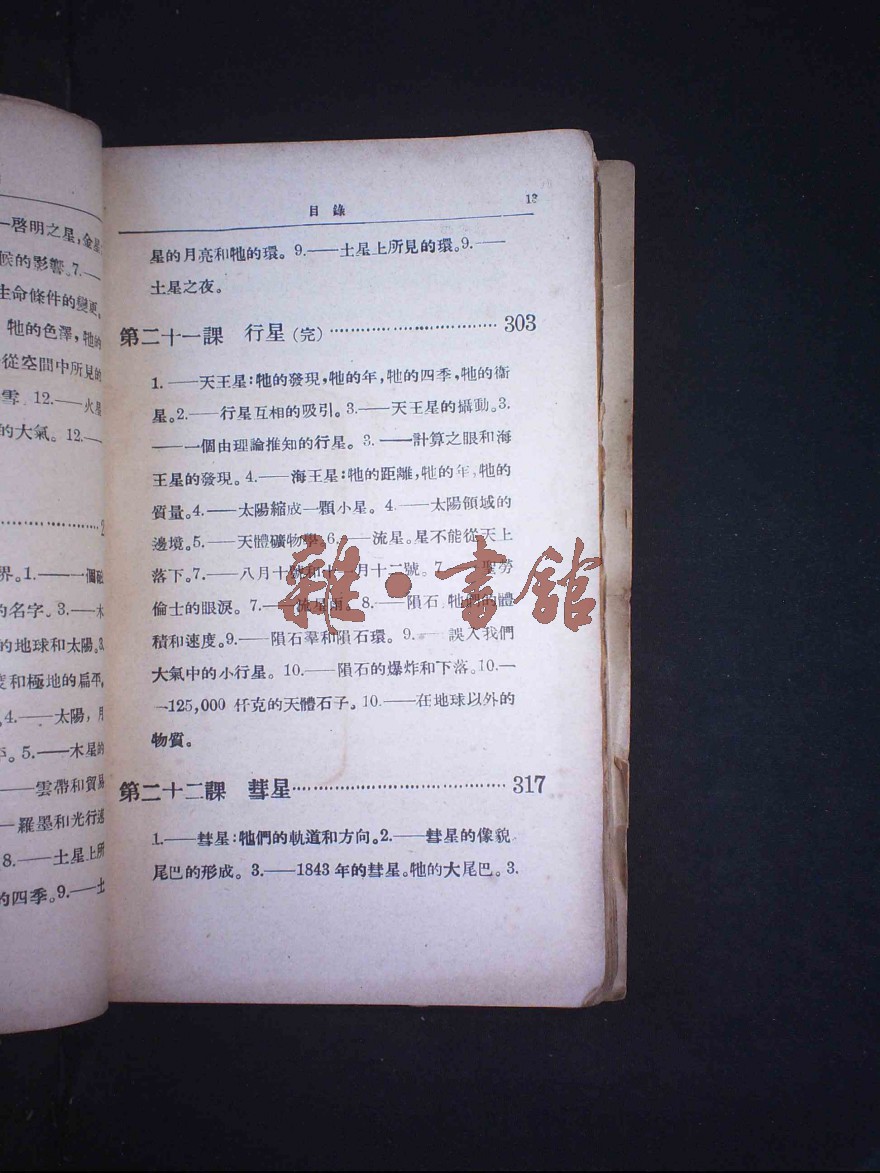 一啓明之星,金星
候的影響。7.——
生命條件的變更,
牠的色澤,牠的
從空間中所見的
雪 12.——火星
的大氣。12.——
2
界。1.——一個磁
的名字。3.——木
的地球和太陽。3.
度和極地的扁平,
4.——太陽,月
。5.——木星的
——雲帶和貿易
—羅墨和光行速
8.——土星上所
的四季。9.——土
目錄 13
星的月亮和牠的環。9.——土星上所見的環。9.——
土星之夜。
第二十一課 行星(完)………………………… 303
1.——天王星:牠的發現,牠的年,牠的四季,牠的衞
星。2.——行星互相的吸引。3.——天王星的攝動。3.
——一個由理論推知的行星。3.——計算之眼和海
王星的發現。4.——海王星:牠的距離,牠的年,牠的
質量。4.——太陽縮成一顆小星。4.——太陽領域的
邊境。5.——天體礦物學。6.——流星。星不能從天上
落下。7.——八月十號和十一月十二號。7.——聖勞
倫士的眼淚。7.——流星雨。8.——隕石,牠們的體
積和速度。9.——隕石羣和隕石環。9.——誤入我們
大氣中的小行星。10.——隕石的爆炸和下落。10.—
—125,000 仟克的天體石子。10.——在地球以外的
物質。
第二十二課 彗星………………………………… 317
1.——彗星:牠們的軌道和方向。2.——彗星的像貌
尾巴的形成。3.——1843年的彗星。牠的大尾巴。3.
雜·書館